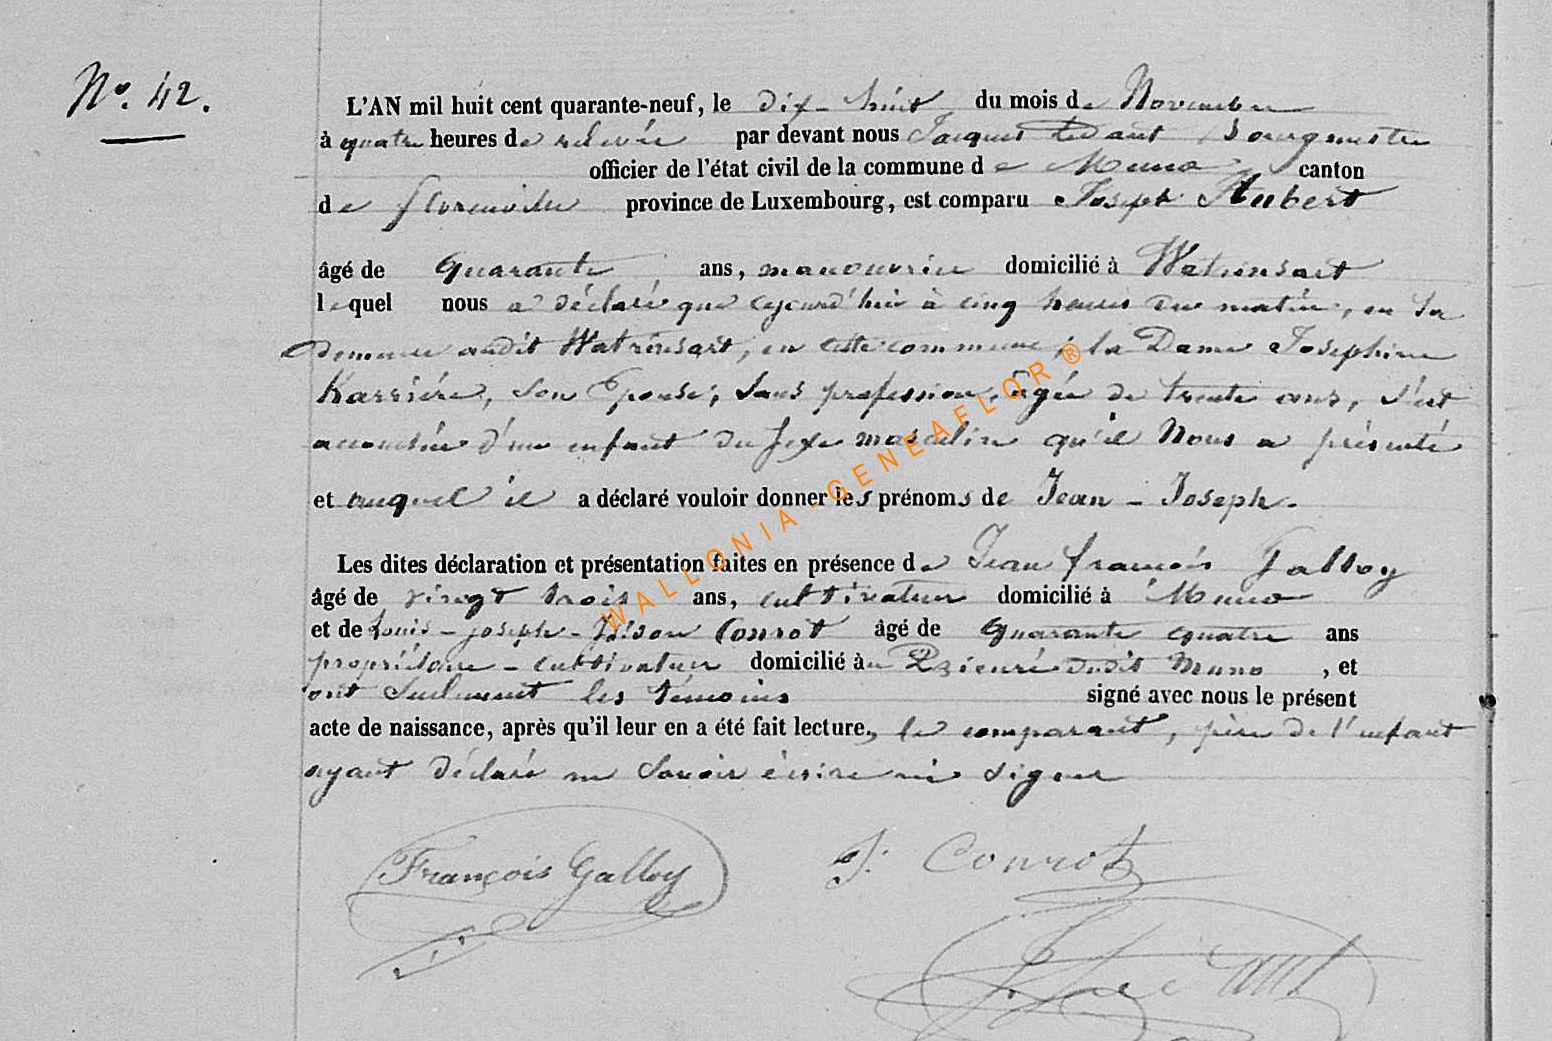 No. 42.
L'AN mil huit cent quarante-neuf, le dix-huit du mois de Novembre
à quatre heures de relevée par devant nous Jacques bourgmestre
officier de l'état civil de la commune de Muno, canton
de florenville province de Luxembourg, est comparu Joseph Hubert
âgé de quarante ans, manouvrier domicilié à Watrinsart
lequel nous a déclaré que cejourd'hui à cinq heures du matin, en sa
demeure audit Watrinsart, en cette commune, la Dame Josephine
Karriére, son Epouse, sans profession, âgée de trente ans, s'est
accouchée d'un enfant du sexe masculin qu'il Nous a présenté
et auquel il a déclaré vouloir donner les prénoms de Jean - Joseph.
Les dites déclaration et présentation faites en présence de Jean françois Galloy
âgé de vingt trois ans, cultivateur domicilié à Muno
et de Louis - joseph - Conrot âgé de quarante quatre ans
propriétaire - cultivateur domicilié àu Prieuré dudit Muno, et
ont seulement les témoins signé avec nous le présent
acte de naissance, après qu'il leur en a été fait lecture, le comparant, père de l'enfant
ayant déclaré ne savoir écrire ni signer
François Galloy
J. Conrot
WALLONIA - GENEAFLOR ®